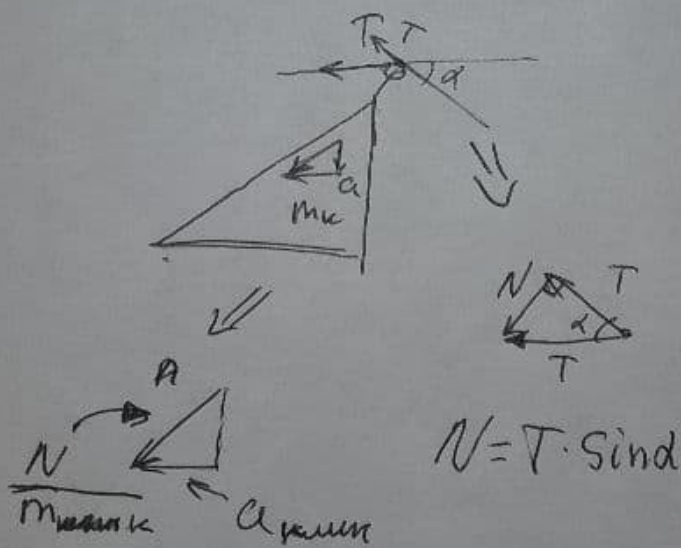 T T
α
a
mк
N T
α
T
A
N
mк
aклин
N=T·Sinα